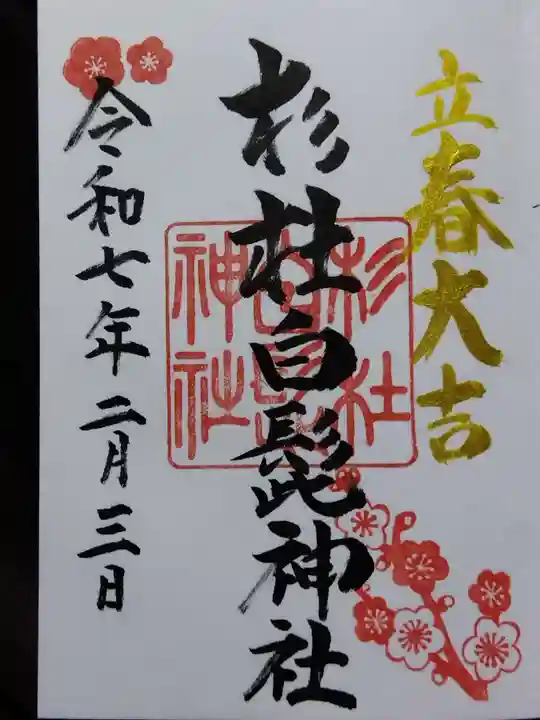 立春大吉
杉杜白髭神社
杉杜白髭神社
令和七年二月三日